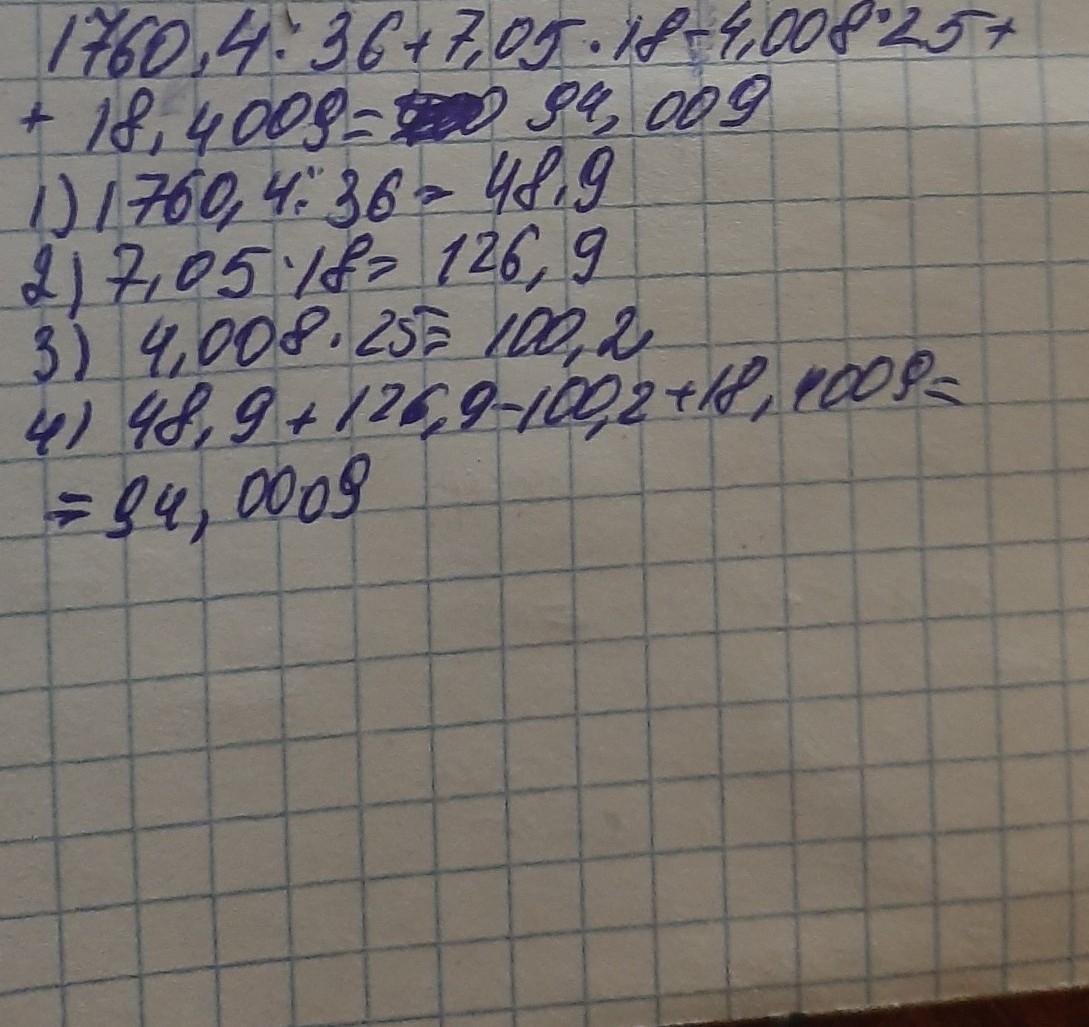 1760,4 : 36 + 7,05 · 18 - 4,008 · 25 +
+ 18,4009 = 94,009
1) 1760,4 : 36 = 48,9
2) 7,05 · 18 = 126,9
3) 4,008 · 25 = 100,2
4) 48,9 + 126,9 - 100,2 + 18,4009 =
= 94,0009